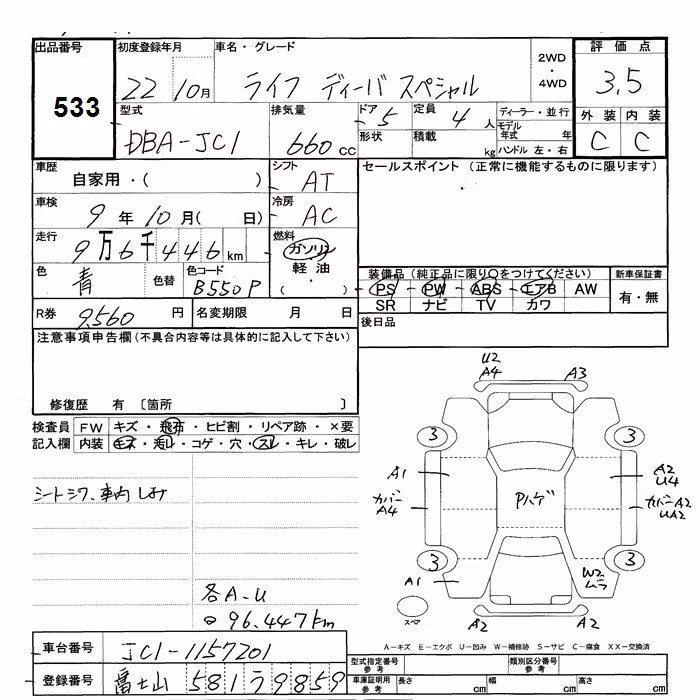 出品番号
533
初度登録年月
22 10月
車名・グレード
ライフ ディーバ スペシャル
2WD
・
4WD
評価点
3.5
外装 内装
C C
型式
DBA-JC1
排気量
660 cc
ドア 5
定員 4 人
ディーラー・並行
形状
積載 kg
モデル年式 年
ハンドル 左・右
車歴
自家用・( )
シフト
AT
セールスポイント (正常に機能するものに限ります)
車検
9年10月( 日)
冷房
AC
走行
9万6千446km
燃料
ガソリン
軽油
( )
色
青
色替
色コード
B550P
装備品 (純正品に限り○をつけてください)
PS PW ABS エアB AW
SR ナビ TV カワ
新車保証書
有・無
R券 9,560 円
名変期限 月 日
後日品
注意事項申告欄(不具合内容等は具体的に記入して下さい)
修復歴 有 〔箇所 〕
検査員記入欄
FW キズ・飛石・ヒビ割・リペア跡・×要
内装 キズ・汚れ・コゲ・穴・スレ・キレ・破レ
シートシワ、車内しみ
各A-U
96.447km
U2
A4
A3
3
3
A1
A2
U4
カバー
A4
Pハゲ
カバーA2
UA2
3
3
A1
W2
ムラ
スペア
A2
A2
A-キズ E-エクボ U-凹み W-補修跡 S-サビ C-腐食 XX-交換済
車台番号
JC1-1157201
登録番号
富士山 581 ラ 9859
型式指定番号
参考
類別区分番号
参考
車庫証明用
参考
長さ cm
幅 cm
高さ cm